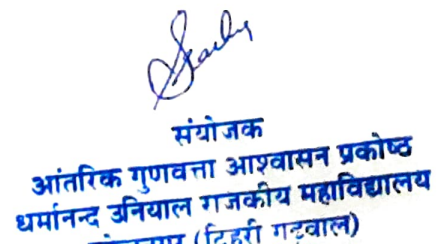 संयोजक
आंतरिक गुणवत्ता आश्वासन प्रकोष्ठ
धर्मानन्द उनियाल राजकीय महाविद्यालय
(टिहरी गढ़वाल)